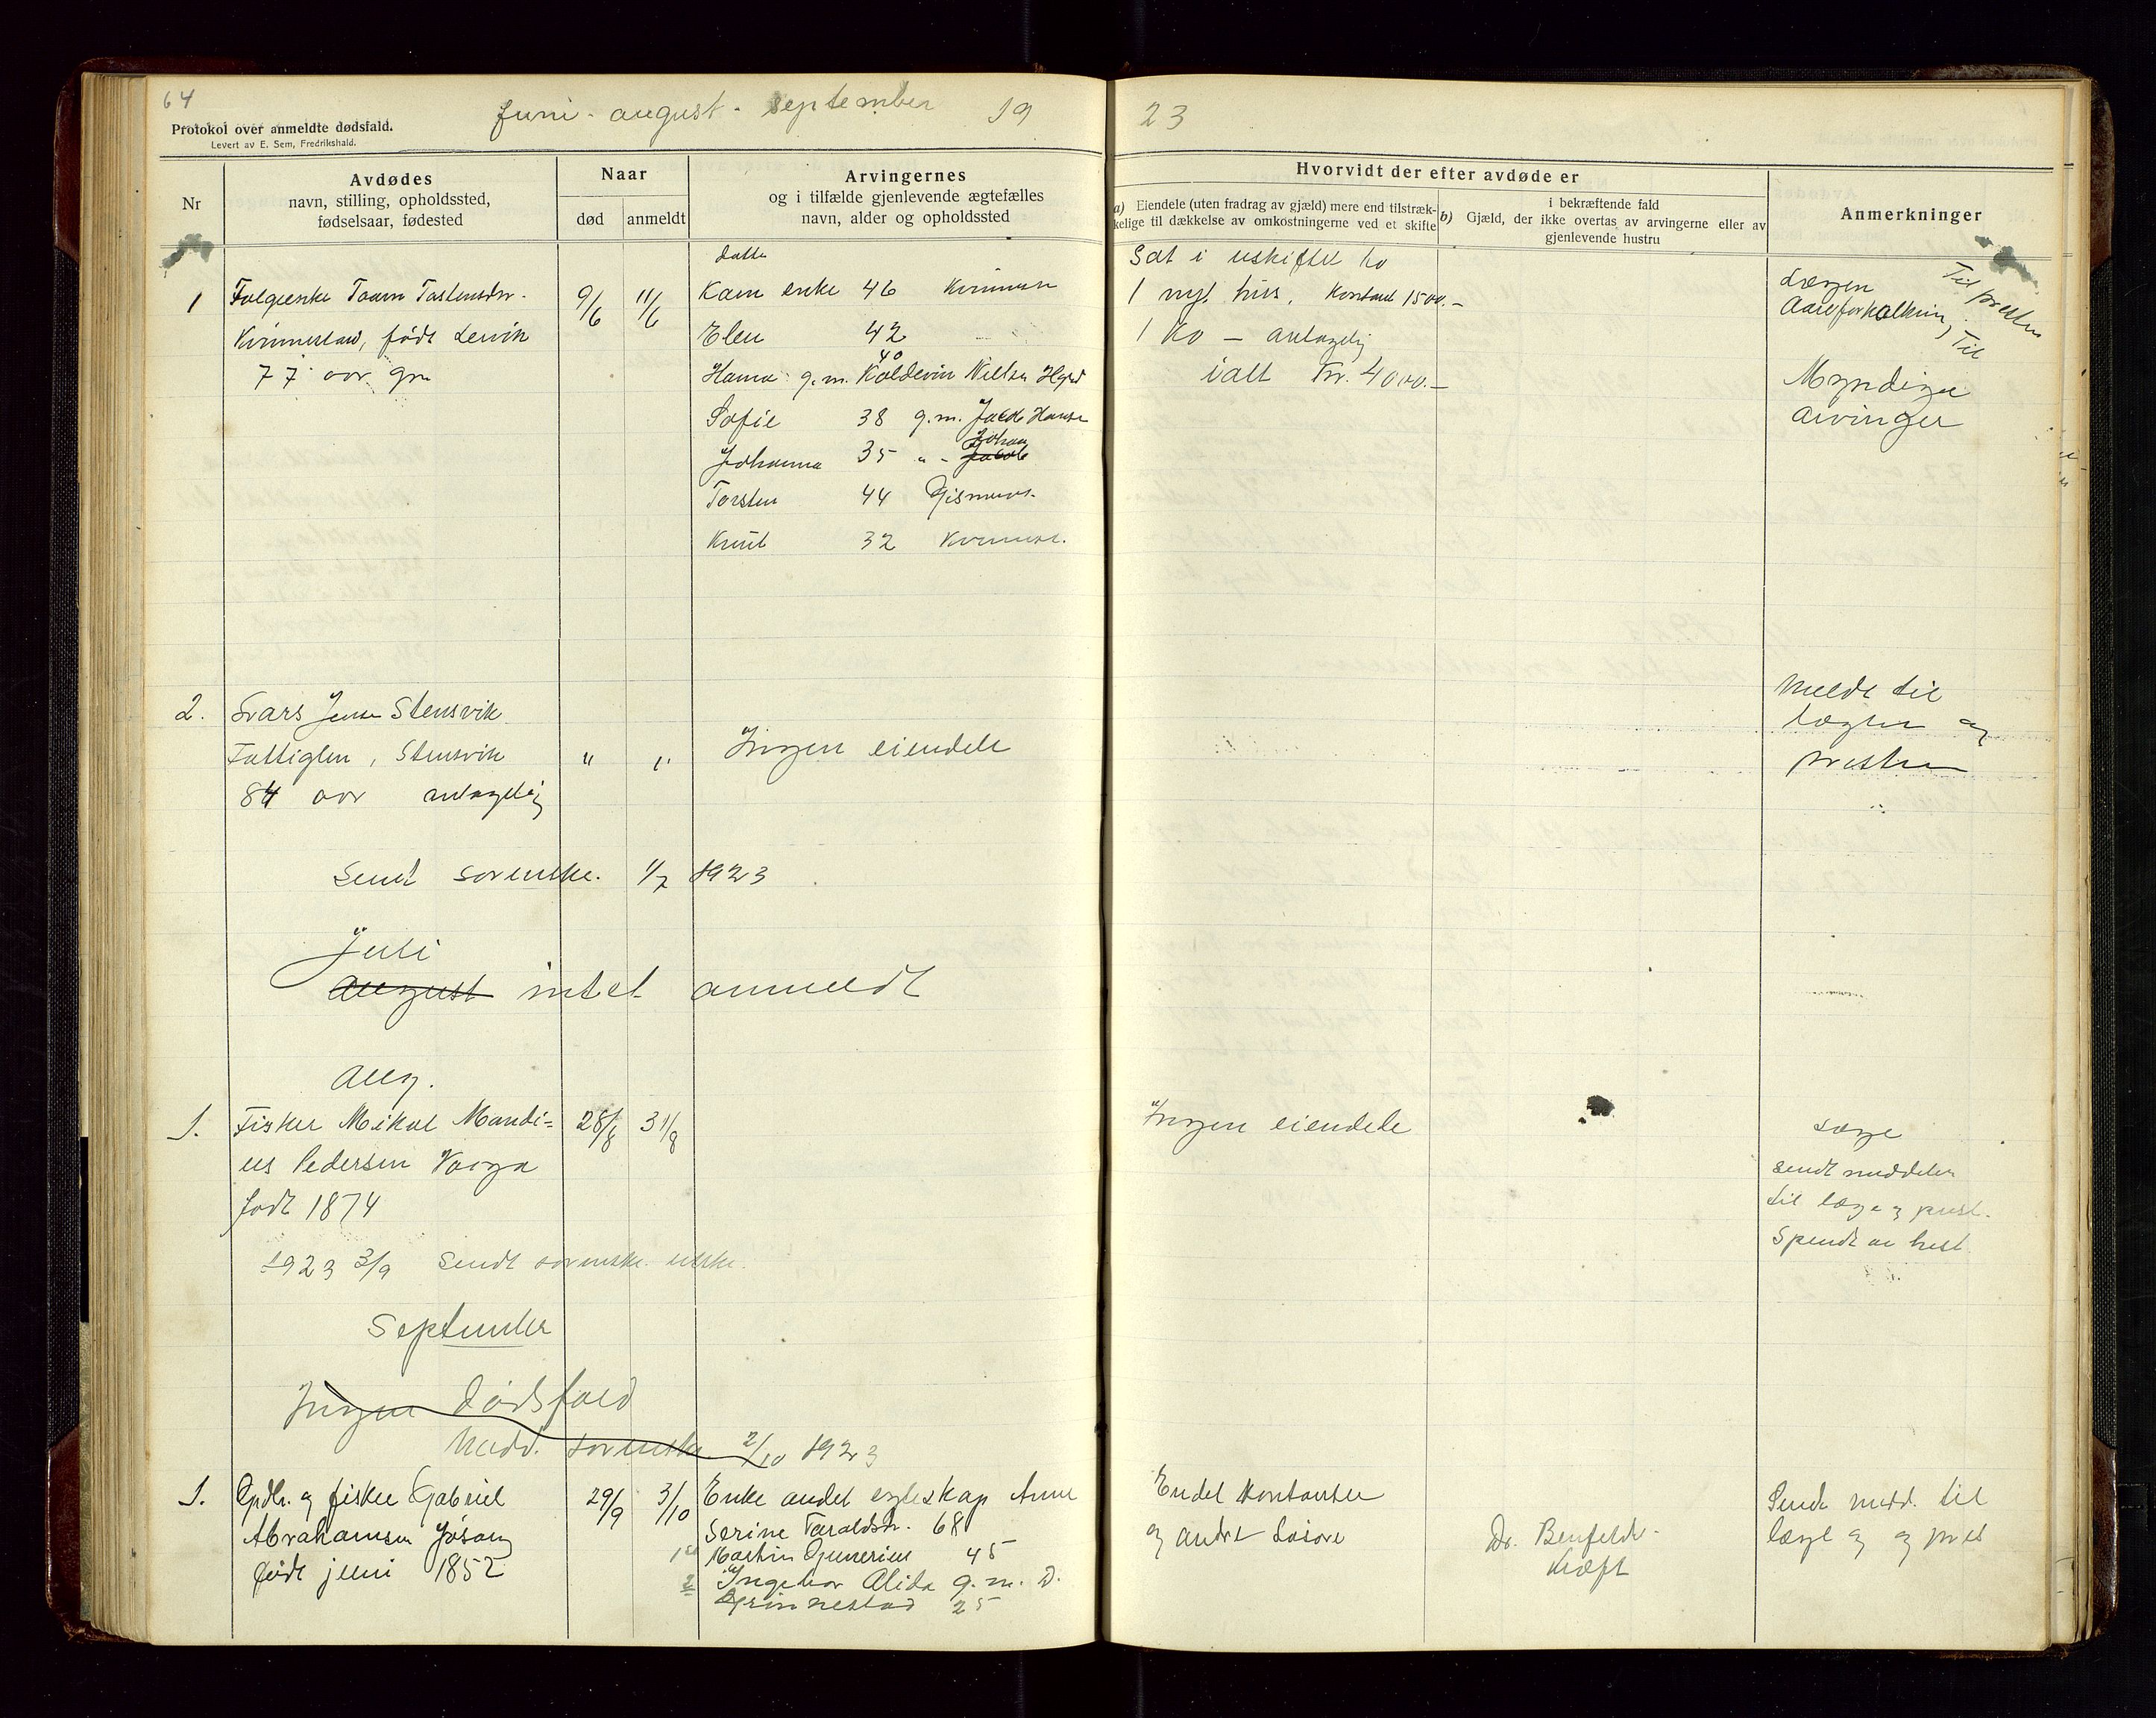 64
Juni - august - september 19 23
Protokol over anmeldte dødsfald.
Levert av E. Sem, Fredrikshald.
Nr
Avdødes
navn, stilling, opholdssted,
fødselsaar, fødested
Naar
død
anmeldt
Arvingernes
og i tilfælde gjenlevende ægtefælles
navn, alder og opholdssted
Hvorvidt der efter avdøde er
a) Eiendele (uten fradrag av gjæld) mere end tilstræk-
kelige til dækkelse av omkostningerne ved et skifte
i bekræftende fald
b) Gjæld, der ikke overtas av arvingerne eller av
gjenlevende hustru
Anmerkninger
1
født Lervik
77 aar
9/6 11/6
enke 46
Elen 42
40
g.m. Koldevin Nielsen
Sofie 38 g.m. Jacob Hansen
Johan
Johanna 35 " - Jacob
Torsten 44
Knut 32
Sat i uskiftet bo
1 nyt hus, Kontant 1500.-
1 Ko - antagelig
ialt Kr. 4000.-
Lægen
Aareforkalkning
Til presten
Til
Myndige
arvinger
2.
Lars Jensen Stensvik
Fattiglem, Stensvik
84 aar antagelig
" "
Ingen eiendele
Meldt til
lægen og
presten
Sendt sorenskr. 1/7 1923
Juli
August intet anmeldt
Aug.
1.
Fisker Mikal Mandi=
us Pedersen Vaaga
født 1874
28/8 31/8
Ingen eiendele
Læge
sendt meddelen
til læge og prest.
Spendt av hest
1923 3/9 Sendt sorenskr.
September
Ingen dødsfald
Medd. sorenskr 2/10 1923
1.
Gpdbr. og fisker Gabriel
Abrahamsen Jøsang
født juni 1852
29/9 3/10
Enke andet egteskap Anne
Serine Taraldstr. 68
1 Martin Gunerius 45
2 Ingebor Alida g.m. D.
Grinnestad 25
Endel Kontanter
og andre Løsøre
Dr. Benfeldt.
Kræft
Sendt medd. til
læge og og prest